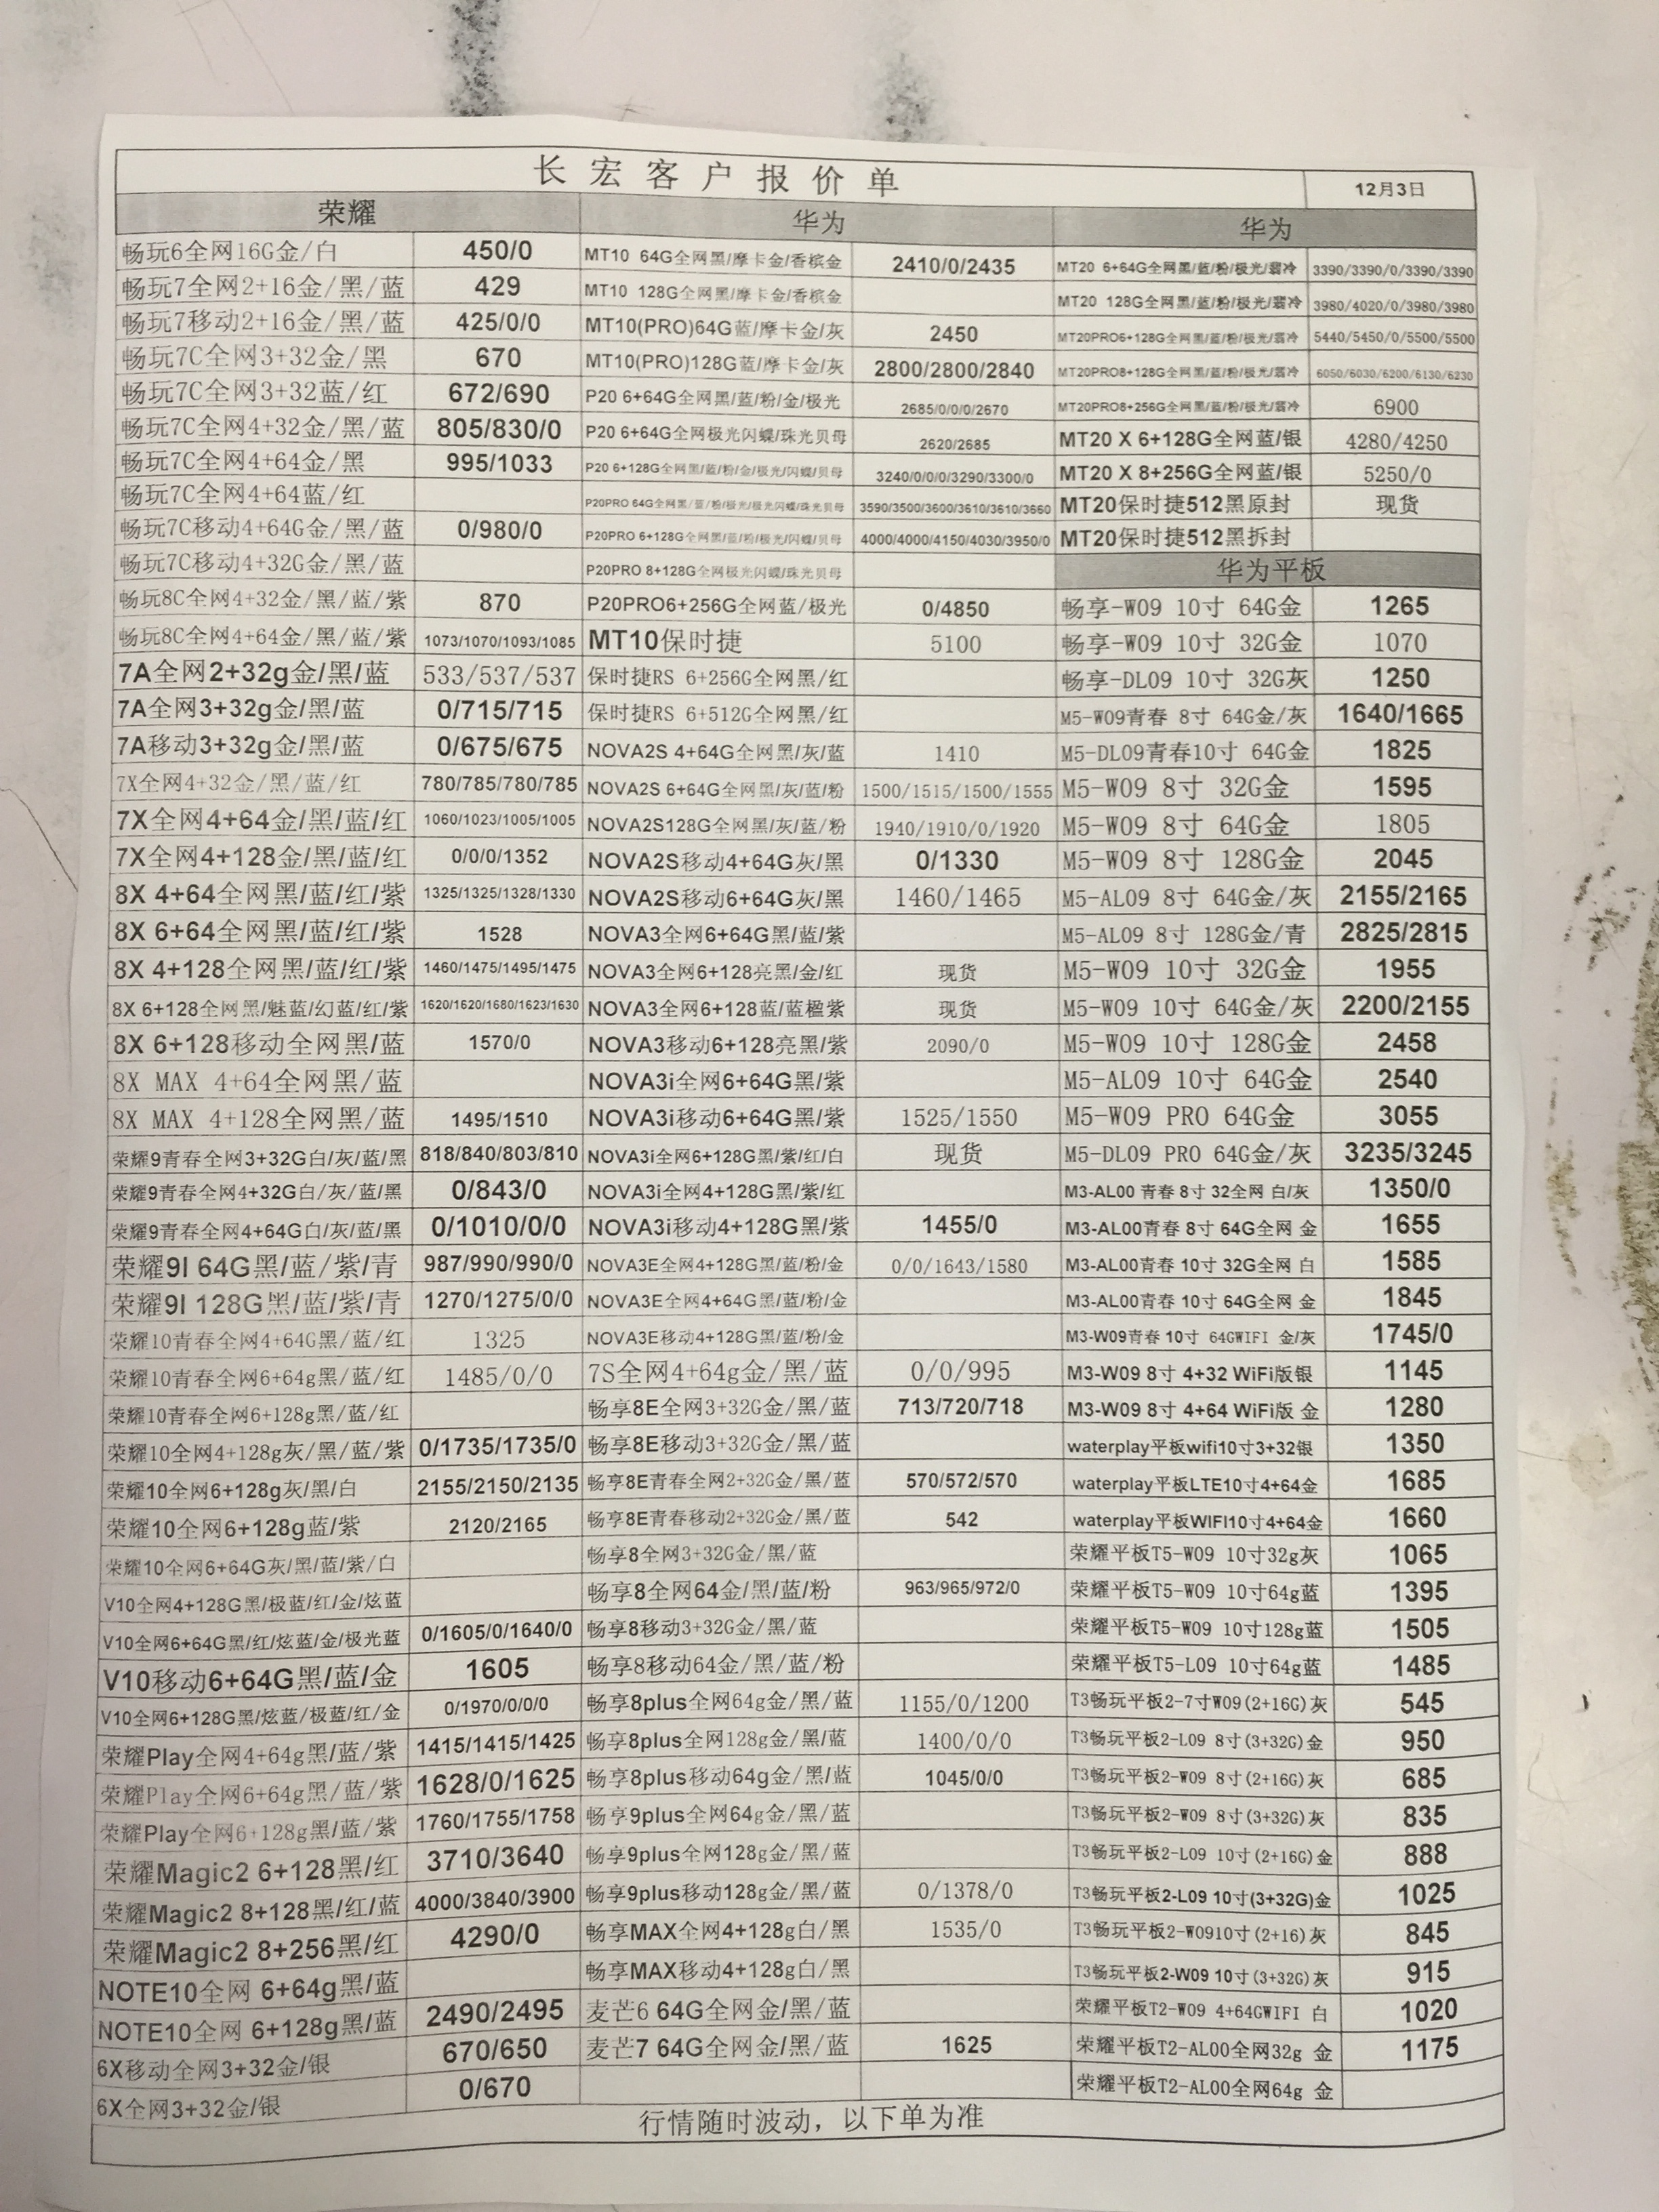 长宏客户报价单 12月3日
荣耀 华为 华为
畅玩6全网16G金/白 450/0 MT10 64G全网黑/摩卡金/香槟金 2410/0/2435 MT20 6+64G全网黑/蓝/粉/极光/翡冷 3390/3390/0/3390/3390
畅玩7全网2+16金/黑/蓝 429 MT10 128G全网黑/摩卡金/香槟金 MT20 128G全网黑/蓝/粉/极光/翡冷 3980/4020/0/3980/3980
畅玩7移动2+16金/黑/蓝 425/0/0 MT10(PRO)64G蓝/摩卡金/灰 2450 MT20PRO6+128G全网黑/蓝/粉/极光/翡冷 5440/5450/0/5500/5500
畅玩7C全网3+32金/黑 670 MT10(PRO)128G蓝/摩卡金/灰 2800/2800/2840 MT20PRO8+128G全网黑/蓝/粉/极光/翡冷 6050/6030/6200/6130/6230
畅玩7C全网3+32蓝/红 672/690 P20 6+64G全网黑/蓝/粉/金/极光 2685/0/0/0/2670 MT20PRO8+256G全网黑/蓝/粉/极光/翡冷 6900
畅玩7C全网4+32金/黑/蓝 805/830/0 P20 6+64G全网极光闪蝶/珠光贝母 2620/2685 MT20 X 6+128G全网蓝/银 4280/4250
畅玩7C全网4+64金/黑 995/1033 P20 6+128G全网黑/蓝/粉/金/极光/闪蝶/贝母 3240/0/0/0/3290/3300/0 MT20 X 8+256G全网蓝/银 5250/0
畅玩7C全网4+64蓝/红 P20PRO 64G全网黑/蓝/粉/极光/极光闪蝶/珠光贝母 3590/3500/3600/3610/3610/3660 MT20保时捷512黑原封 现货
畅玩7C移动4+64G金/黑/蓝 0/980/0 P20PRO 6+128G全网黑/蓝/粉/极光/闪蝶/贝母 4000/4000/4150/4030/3950/0 MT20保时捷512黑拆封
畅玩7C移动4+32G金/黑/蓝 P20PRO 8+128G全网极光闪蝶/珠光贝母 华为平板
畅玩8C全网4+32金/黑/蓝/紫 870 P20PRO6+256G全网蓝/极光 0/4850 畅享-W09 10寸 64G金 1265
畅玩8C全网4+64金/黑/蓝/紫 1073/1070/1093/1085 MT10保时捷 5100 畅享-W09 10寸 32G金 1070
7A全网2+32g金/黑/蓝 533/537/537 保时捷RS 6+256G全网黑/红 畅享-DL09 10寸 32G灰 1250
7A全网3+32g金/黑/蓝 0/715/715 保时捷RS 6+512G全网黑/红 M5-W09青春 8寸 64G金/灰 1640/1665
7A移动3+32g金/黑/蓝 0/675/675 NOVA2S 4+64G全网黑/灰/蓝 1410 M5-DL09青春10寸 64G金 1825
7X全网4+32金/黑/蓝/红 780/785/780/785 NOVA2S 6+64G全网黑/灰/蓝/粉 1500/1515/1500/1555 M5-W09 8寸 32G金 1595
7X全网4+64金/黑/蓝/红 1060/1023/1005/1005 NOVA2S128G全网黑/灰/蓝/粉 1940/1910/0/1920 M5-W09 8寸 64G金 1805
7X全网4+128金/黑/蓝/红 0/0/0/1352 NOVA2S移动4+64G灰/黑 0/1330 M5-W09 8寸 128G金 2045
8X 4+64全网黑/蓝/红/紫 1325/1325/1328/1330 NOVA2S移动6+64G灰/黑 1460/1465 M5-AL09 8寸 64G金/灰 2155/2165
8X 6+64全网黑/蓝/红/紫 1528 NOVA3全网6+64G黑/蓝/紫 M5-AL09 8寸 128G金/青 2825/2815
8X 4+128全网黑/蓝/红/紫 1460/1475/1495/1475 NOVA3全网6+128亮黑/金/红 现货 M5-W09 10寸 32G金 1955
8X 6+128全网黑/魅蓝/幻蓝/红/紫 1620/1620/1680/1623/1630 NOVA3全网6+128蓝/蓝楹紫 现货 M5-W09 10寸 64G金/灰 2200/2155
8X 6+128移动全网黑/蓝 1570/0 NOVA3移动6+128亮黑/紫 2090/0 M5-W09 10寸 128G金 2458
8X MAX 4+64全网黑/蓝 NOVA3i全网6+64G黑/紫 M5-AL09 10寸 64G金 2540
8X MAX 4+128全网黑/蓝 1495/1510 NOVA3i移动6+64G黑/紫 1525/1550 M5-W09 PRO 64G金 3055
荣耀9青春全网3+32G白/灰/蓝/黑 818/840/803/810 NOVA3i全网6+128G黑/紫/红/白 现货 M5-DL09 PRO 64G金/灰 3235/3245
荣耀9青春全网4+32G白/灰/蓝/黑 0/843/0 NOVA3i全网4+128G黑/紫/红 M3-AL00 青春 8寸 32全网 白/灰 1350/0
荣耀9青春全网4+64G白/灰/蓝/黑 0/1010/0/0 NOVA3i移动4+128G黑/紫 1455/0 M3-AL00青春 8寸 64G全网 金 1655
荣耀9I 64G黑/蓝/紫/青 987/990/990/0 NOVA3E全网4+128G黑/蓝/粉/金 0/0/1643/1580 M3-AL00青春 10寸 32G全网 白 1585
荣耀9I 128G黑/蓝/紫/青 1270/1275/0/0 NOVA3E全网4+64G黑/蓝/粉/金 M3-AL00青春 10寸 64G全网 金 1845
荣耀10青春全网4+64G黑/蓝/红 1325 NOVA3E移动4+128G黑/蓝/粉/金 M3-W09青春 10寸 64GWIFI 金/灰 1745/0
荣耀10青春全网6+64g黑/蓝/红 1485/0/0 7S全网4+64g金/黑/蓝 0/0/995 M3-W09 8寸 4+32 WiFi版银 1145
荣耀10青春全网6+128g黑/蓝/红 畅享8E全网3+32G金/黑/蓝 713/720/718 M3-W09 8寸 4+64 WiFi版 金 1280
荣耀10全网4+128g灰/黑/蓝/紫 0/1735/1735/0 畅享8E移动3+32G金/黑/蓝 waterplay平板wifi10寸3+32银 1350
荣耀10全网6+128g灰/黑/白 2155/2150/2135 畅享8E青春全网2+32G金/黑/蓝 570/572/570 waterplay平板LTE10寸4+64金 1685
荣耀10全网6+128g蓝/紫 2120/2165 畅享8E青春移动2+32G金/黑/蓝 542 waterplay平板WIFI10寸4+64金 1660
荣耀10全网6+64G灰/黑/蓝/紫/白 畅享8全网3+32G金/黑/蓝 荣耀平板T5-W09 10寸32g灰 1065
V10全网4+128G黑/极蓝/红/金/炫蓝 畅享8全网64金/黑/蓝/粉 963/965/972/0 荣耀平板T5-W09 10寸64g蓝 1395
V10全网6+64G黑/红/炫蓝/金/极光蓝 0/1605/0/1640/0 畅享8移动3+32G金/黑/蓝 荣耀平板T5-W09 10寸128g蓝 1505
V10移动6+64G黑/蓝/金 1605 畅享8移动64金/黑/蓝/粉 荣耀平板T5-L09 10寸64g蓝 1485
V10全网6+128G黑/炫蓝/极蓝/红/金 0/1970/0/0/0 畅享8plus全网64g金/黑/蓝 1155/0/1200 T3畅玩平板2-7寸W09(2+16G)灰 545
荣耀Play全网4+64g黑/蓝/紫 1415/1415/1425 畅享8plus全网128g金/黑/蓝 1400/0/0 T3畅玩平板2-L09 8寸(3+32G)金 950
荣耀Play全网6+64g黑/蓝/紫 1628/0/1625 畅享8plus移动64g金/黑/蓝 1045/0/0 T3畅玩平板2-W09 8寸(2+16G)灰 685
荣耀Play全网6+128g黑/蓝/紫 1760/1755/1758 畅享9plus全网64g金/黑/蓝 T3畅玩平板2-W09 8寸(3+32G)灰 835
荣耀Magic2 6+128黑/红 3710/3640 畅享9plus全网128g金/黑/蓝 T3畅玩平板2-L09 10寸(2+16G)金 888
荣耀Magic2 8+128黑/红/蓝 4000/3840/3900 畅享9plus移动128g金/黑/蓝 0/1378/0 T3畅玩平板2-L09 10寸(3+32G)金 1025
荣耀Magic2 8+256黑/红 4290/0 畅享MAX全网4+128g白/黑 1535/0 T3畅玩平板2-W0910寸(2+16)灰 845
NOTE10全网 6+64g黑/蓝 畅享MAX移动4+128g白/黑 T3畅玩平板2-W09 10寸(3+32G)灰 915
NOTE10全网 6+128g黑/蓝 2490/2495 麦芒6 64G全网金/黑/蓝 荣耀平板T2-W09 4+64GWIFI 白 1020
6X移动全网3+32金/银 670/650 麦芒7 64G全网金/黑/蓝 1625 荣耀平板T2-AL00全网32g 金 1175
6X全网3+32金/银 0/670 荣耀平板T2-AL00全网64g 金
行情随时波动，以下单为准